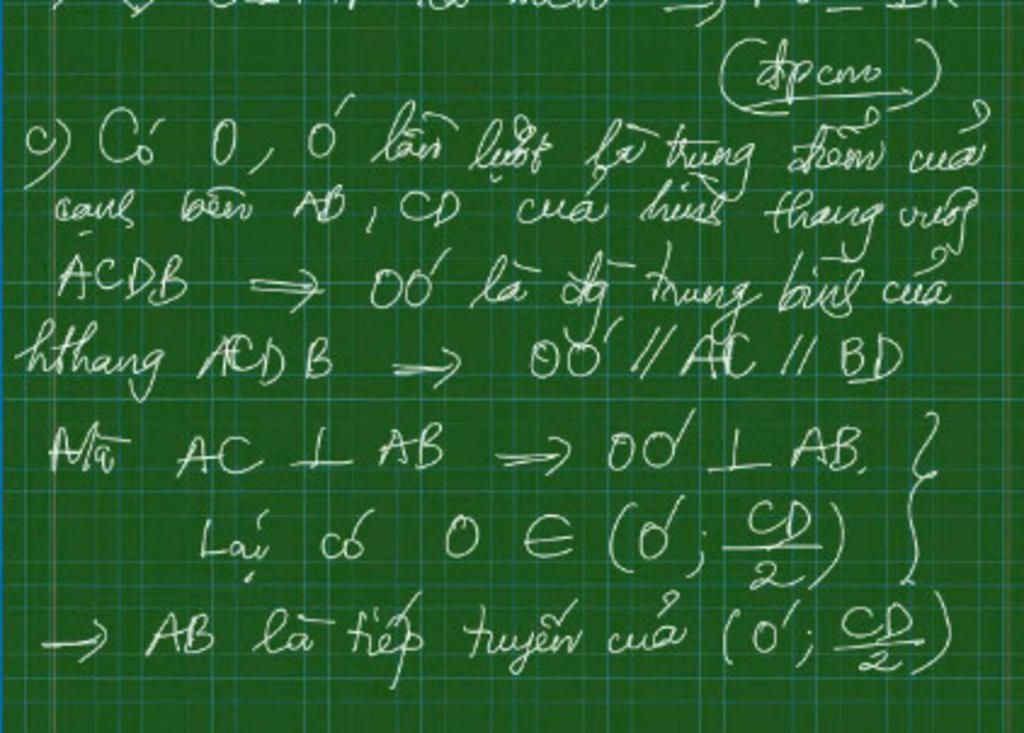 (đpcm)
c) Có O, O' lần lượt là trung điểm của
cạnh bên AB, CD của hình thang vuông
ACDB ⟹ OO' là đg trung bình của
hthang ACDB → OO' // AC // BD
Mà AC ⊥ AB ⟹ OO' ⊥ AB. }
Lại có O ∈ (O'; CD/2) }
→ AB là tiếp tuyến của (O'; CD/2)